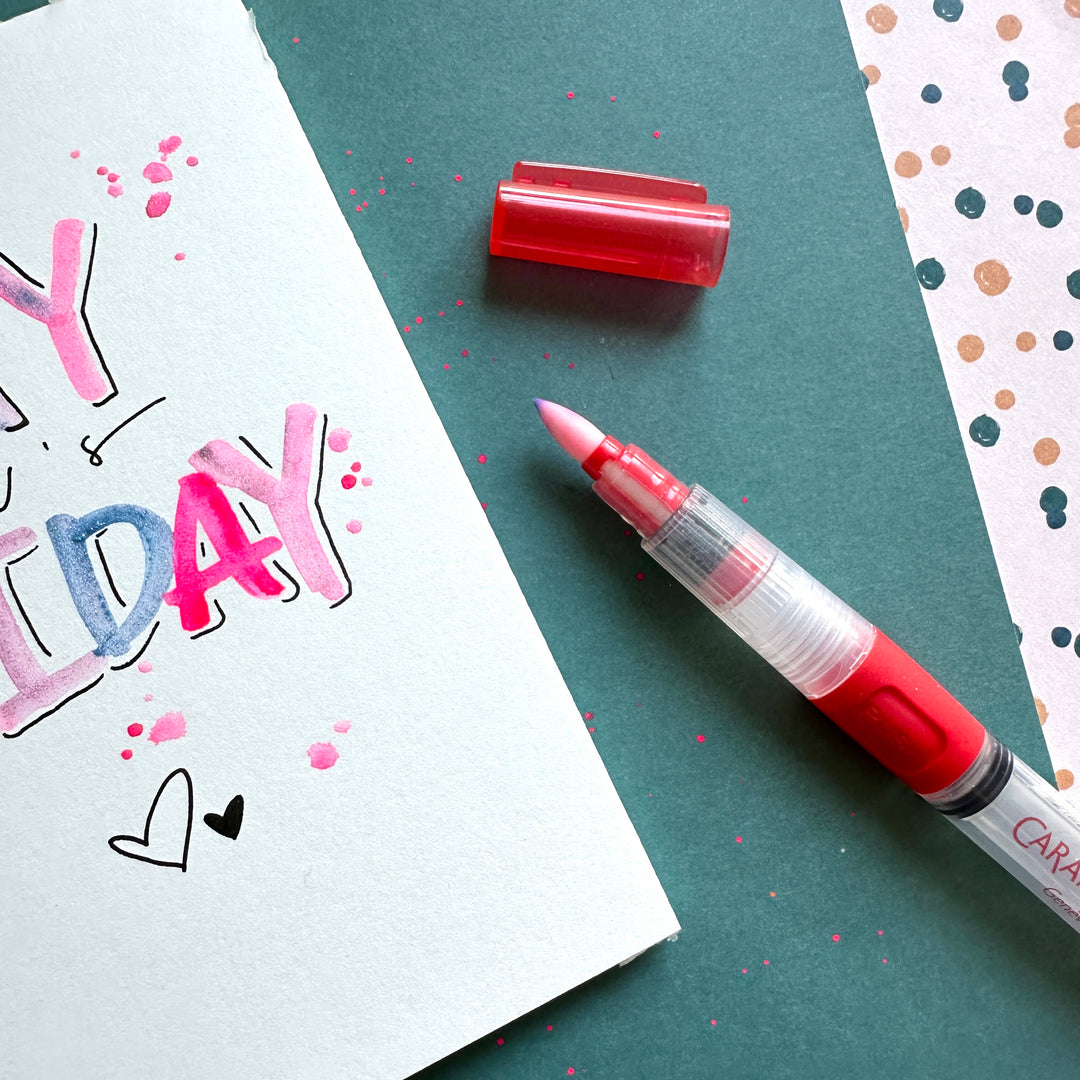 Y
's
IDAY
CARA
Genè